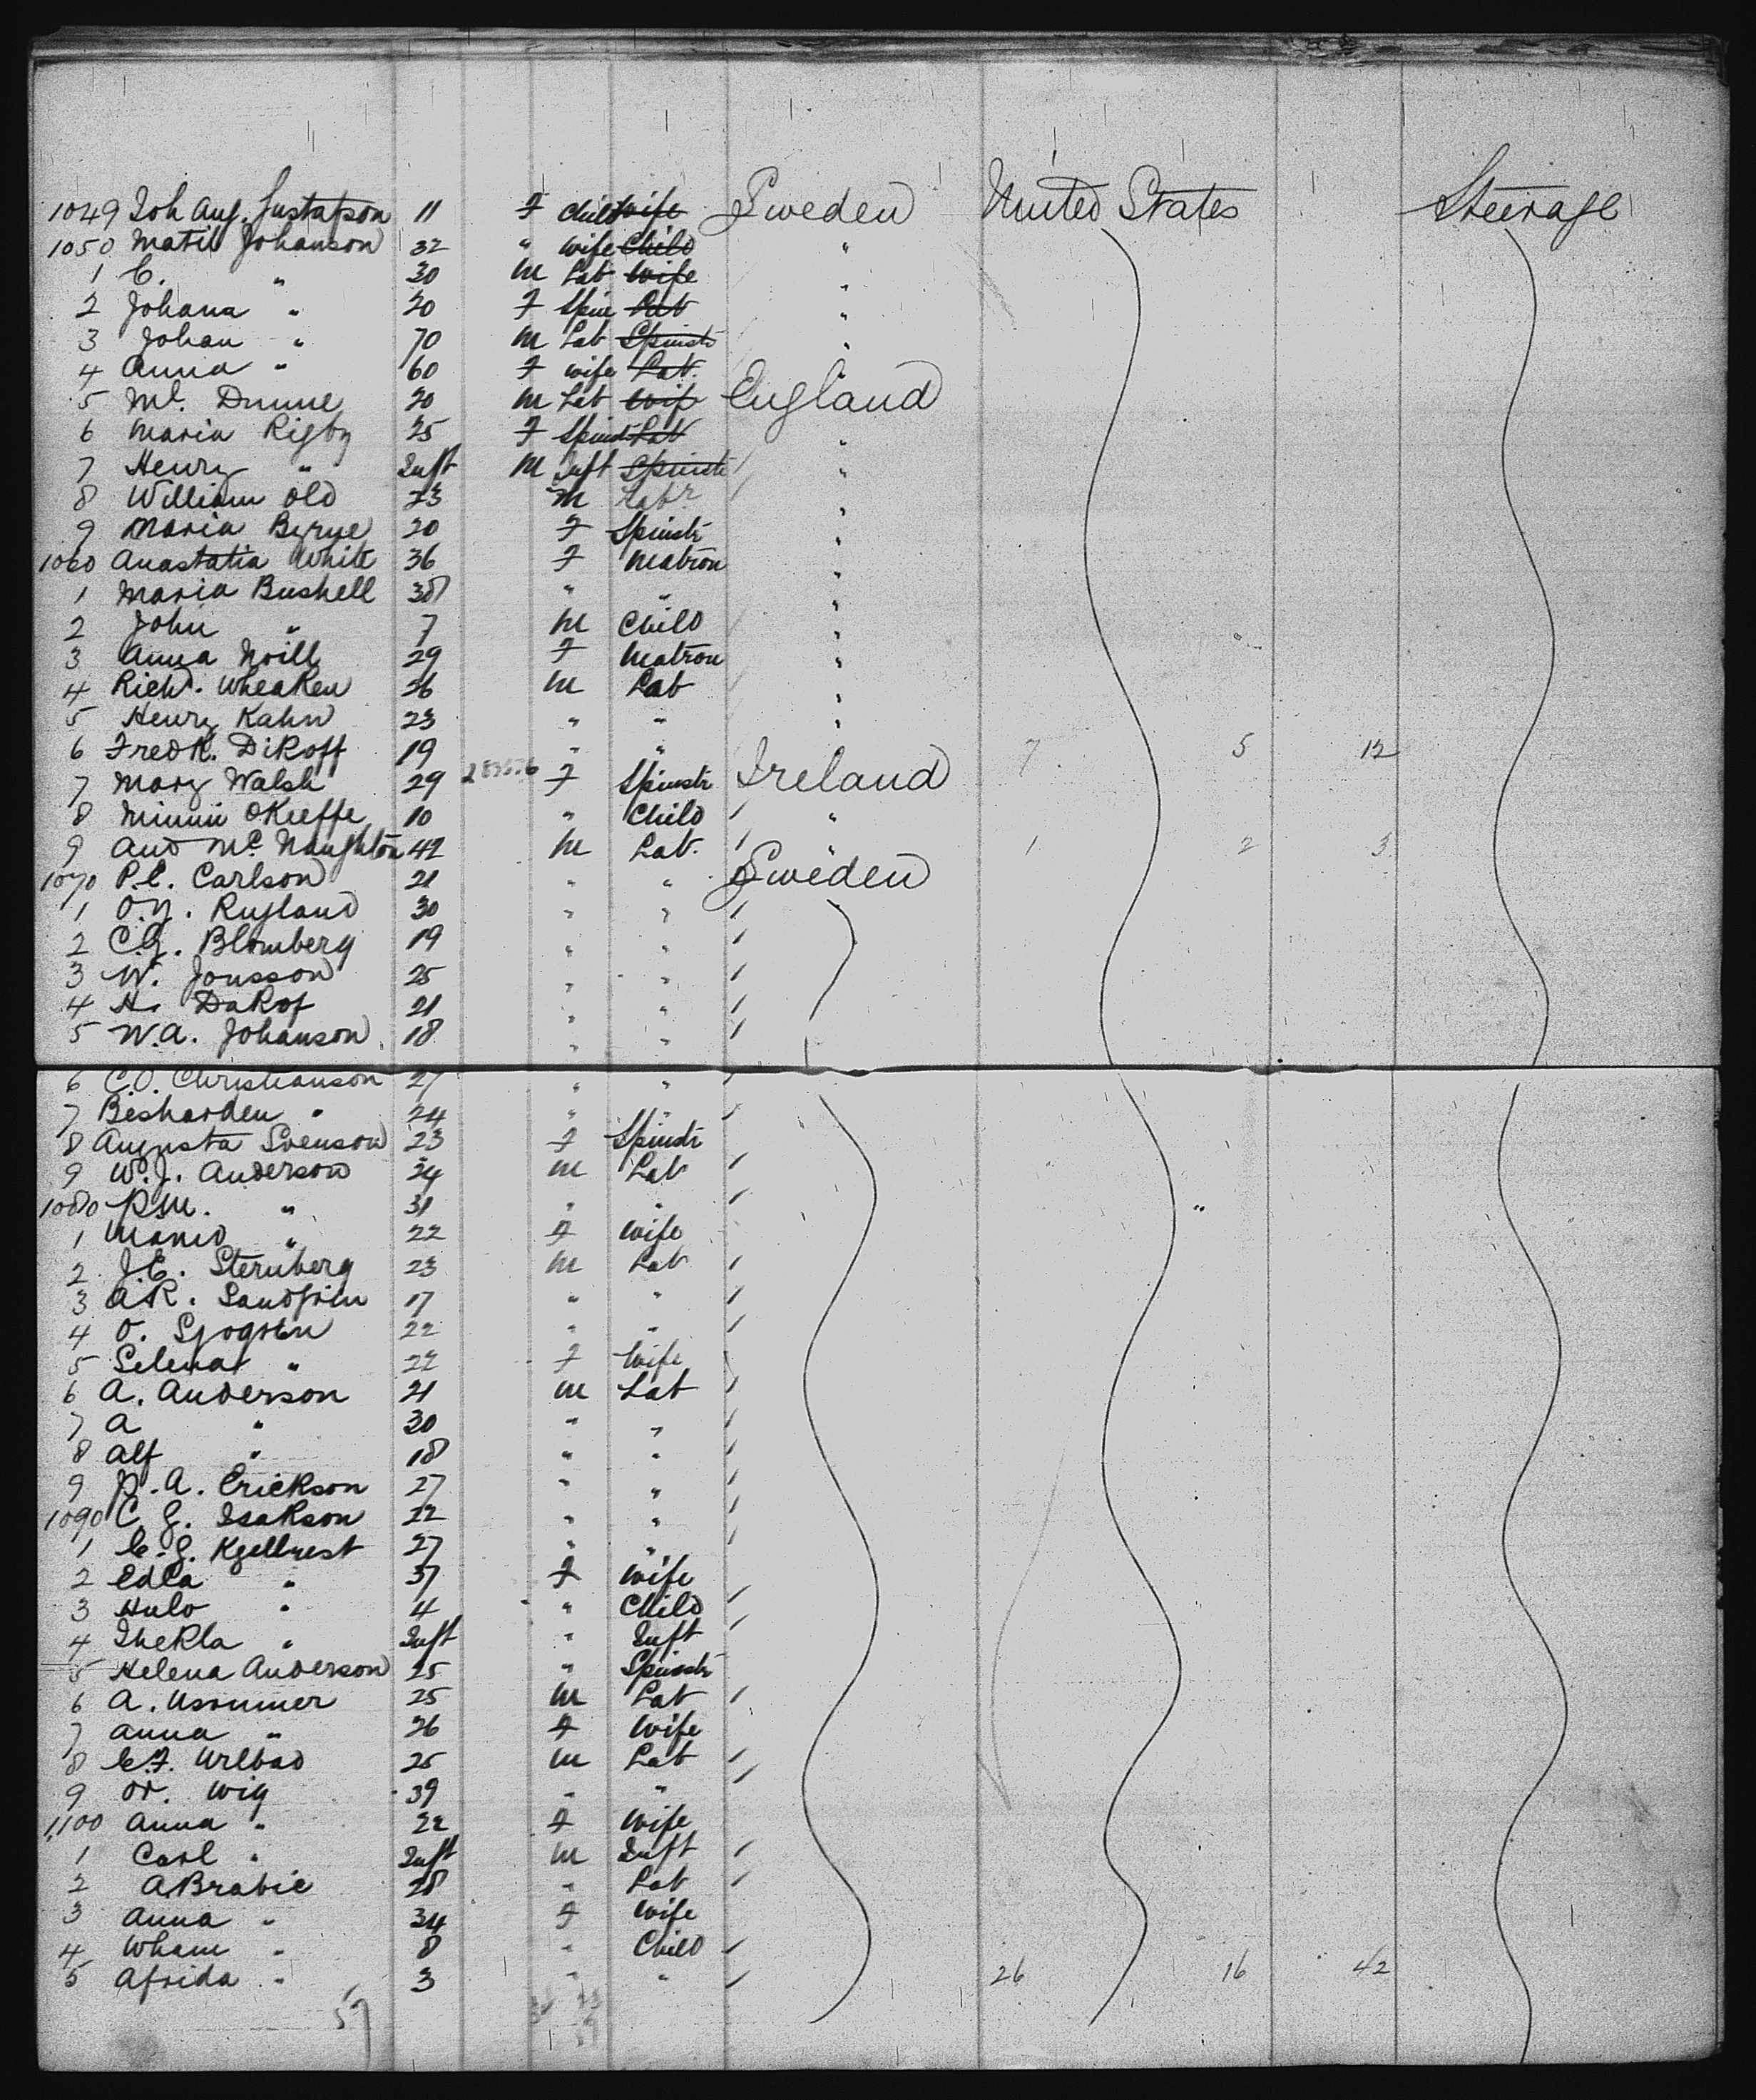 1049 Joh Aug. Gustafson 11 F Child Wife Sweden United States Steerage
1050 Matil Johanson 32 " Wife Child "
1 C. " 30 M Lab Wife "
2 Johana " 20 F Spin Lab "
3 Johan " 70 M Lab Spinstr "
4 Anna " 60 F Wife Lab. "
5 Ml. Dunne 20 M Lab Wife England
6 Maria Rigby 25 F Spinst Lab "
7 Henry " Inft M Inft Spinstr "
8 William Old 23 M Labr "
9 Maria Byrye 20 F Spinstr "
1060 Anastatia White 36 F Matron "
1 Maria Bushell 38 " " "
2 John " 7 M Child "
3 Anna Noill 29 F Matron "
4 Richd. Wheaken 26 M Lab "
5 Henry Kahn 23 " " "
6 Fredk. Dikoff 19 " " 7 5 12
7 Mary Walsh 29 F Spinstr Ireland
8 Minnie OKeeffe 10 " Child "
9 And McNaughton 42 M Lab. " 1 2 3
1070 P.E. Carlson 21 " " Sweden
1 O.N. Rugland 30 " "
2 C.G. Blomberg 19 " "
3 W. Jonsson 25 " "
4 H. Dakof 21 " "
5 W.A. Johanson 18 " "
6 C.O. Christianson 27 " "
7 Besharden " 24 " "
8 Augusta Svenson 23 F Spinstr
9 W.J. Anderson 24 M Lab
1080 P.M. " 31 " " "
1 " 22 F Wife
2 J.E. Sternberg 23 M Lab
3 A.R. 17 " "
4 O. Sjogren 22 " "
5 Selena " 22 F Wife
6 A. Anderson 21 M Lab
7 A " 30 " "
8 Alf " 18 " "
9 P.A. Erickson 27 " "
1090 C.G. Isakson 22 " "
1 C.G. 27 " "
2 Edla " 37 F Wife
3 Hulo " 4 " Child
4 Thekla " Inft " Inft
5 Helena Anderson 25 " Spinstr
6 A. 25 M Lab
7 Anna " 26 F Wife
8 C.F. Urlbad 25 M Lab
9 Wig 39 " "
1100 Anna " 22 F Wife
1 Carl " Inft M Inft
2 A Brabie 28 " Lab
3 Anna " 34 F Wife
4 " 8 " Child
5 Afrida " 3 " " 26 16 42
59